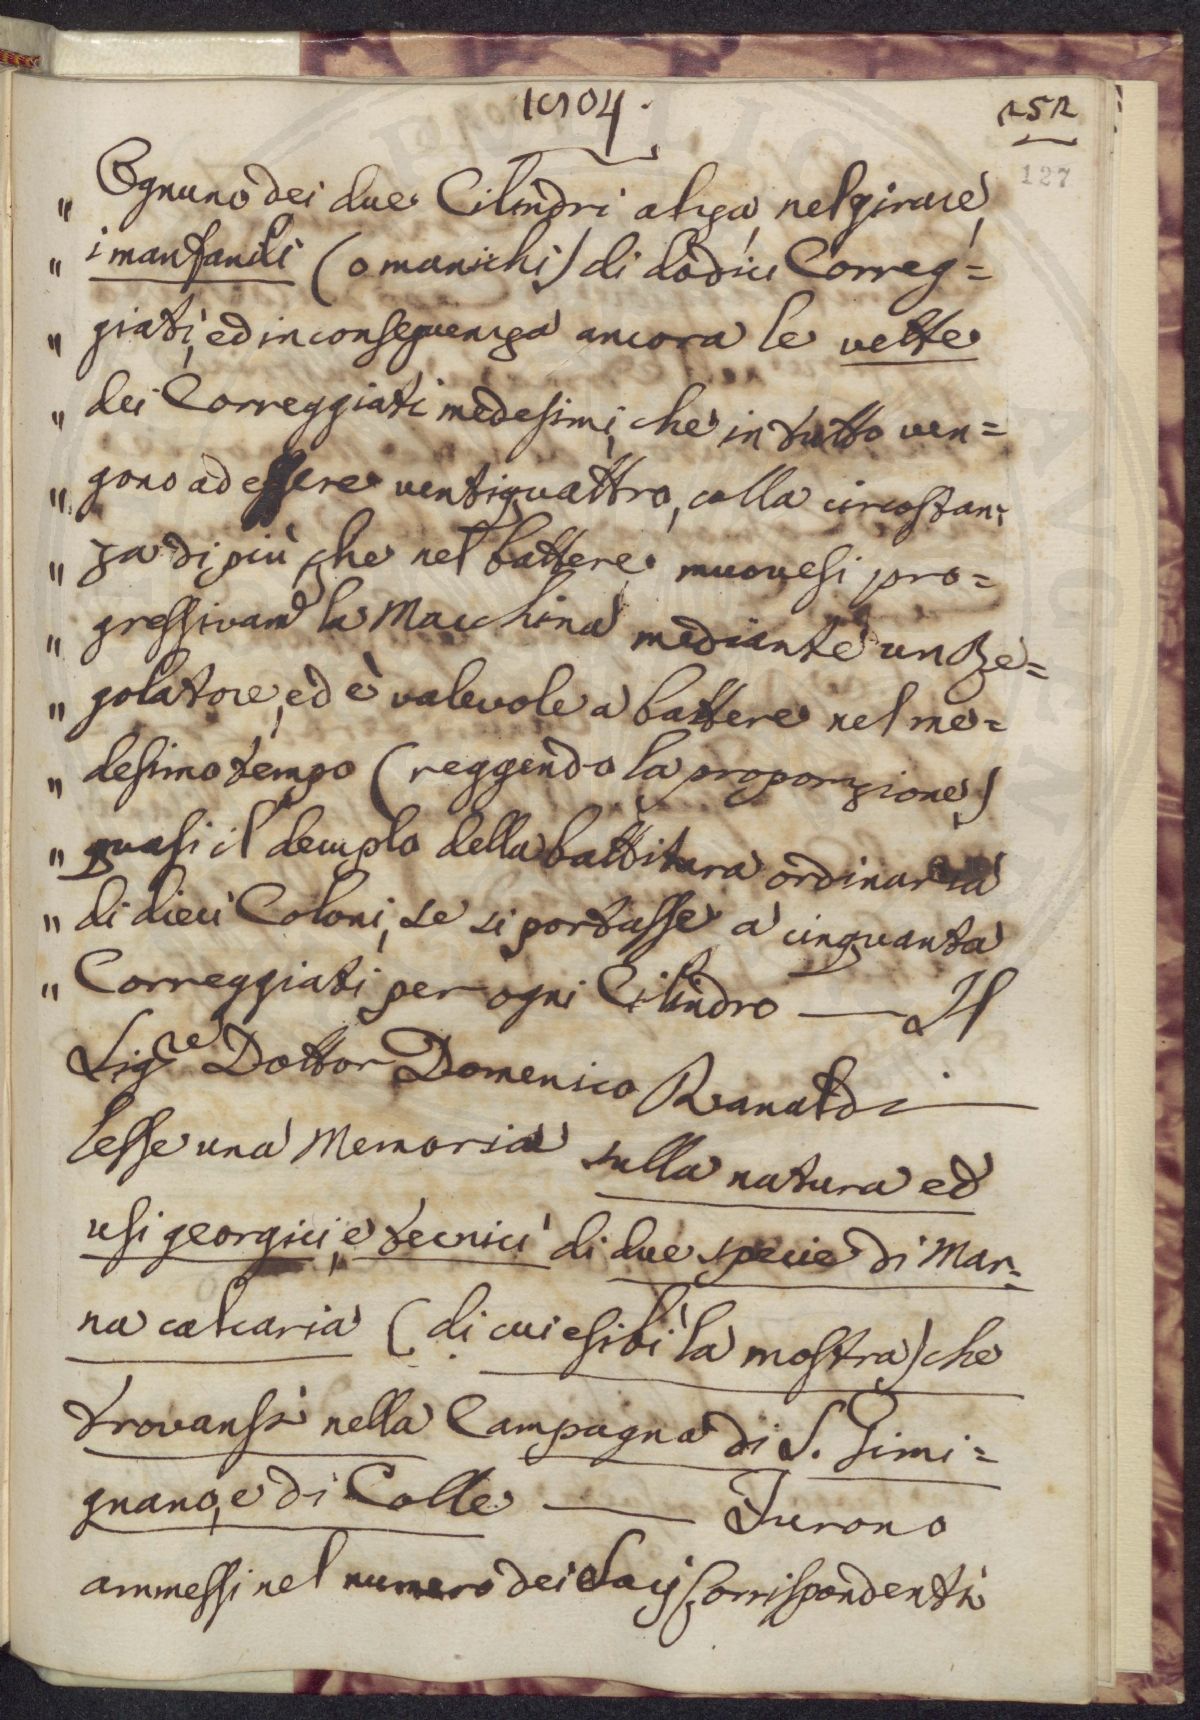 1804.
252
127
„ Ognuno dei due Cilindri alza, nel girare,
„ i manfanili (o manichi) di dodici Correg=
„ giati, ed in conseguenza ancora le vette
„ dei Correggiati medesimi, che in tutto ven=
„ gono ad essere ventiquattro, colla circostan=
„ za di più che nel battere muovesi pro=
„ gressivam.e la Macchina mediante un Re=
„ golatore, ed è valevole a battere nel me=
„ desimo tempo (reggendo la proporzione)
„ quasi il decuplo della battitura ordinaria
„ di dieci Coloni, se si portasse a cinquanta
„ Correggiati per ogni Cilindro — Il
Sig.re Dottor Domenico Ranaldi
lesse una Memoria sulla natura ed
usi georgici, e tecnici di due specie di Mar=
na calcaria (di cui esibì la mostra) che
trovansi nella Campagna di S. Gimi=
gnano, e di Colle — Furono
ammessi nel numero dei Socij Corrispondenti